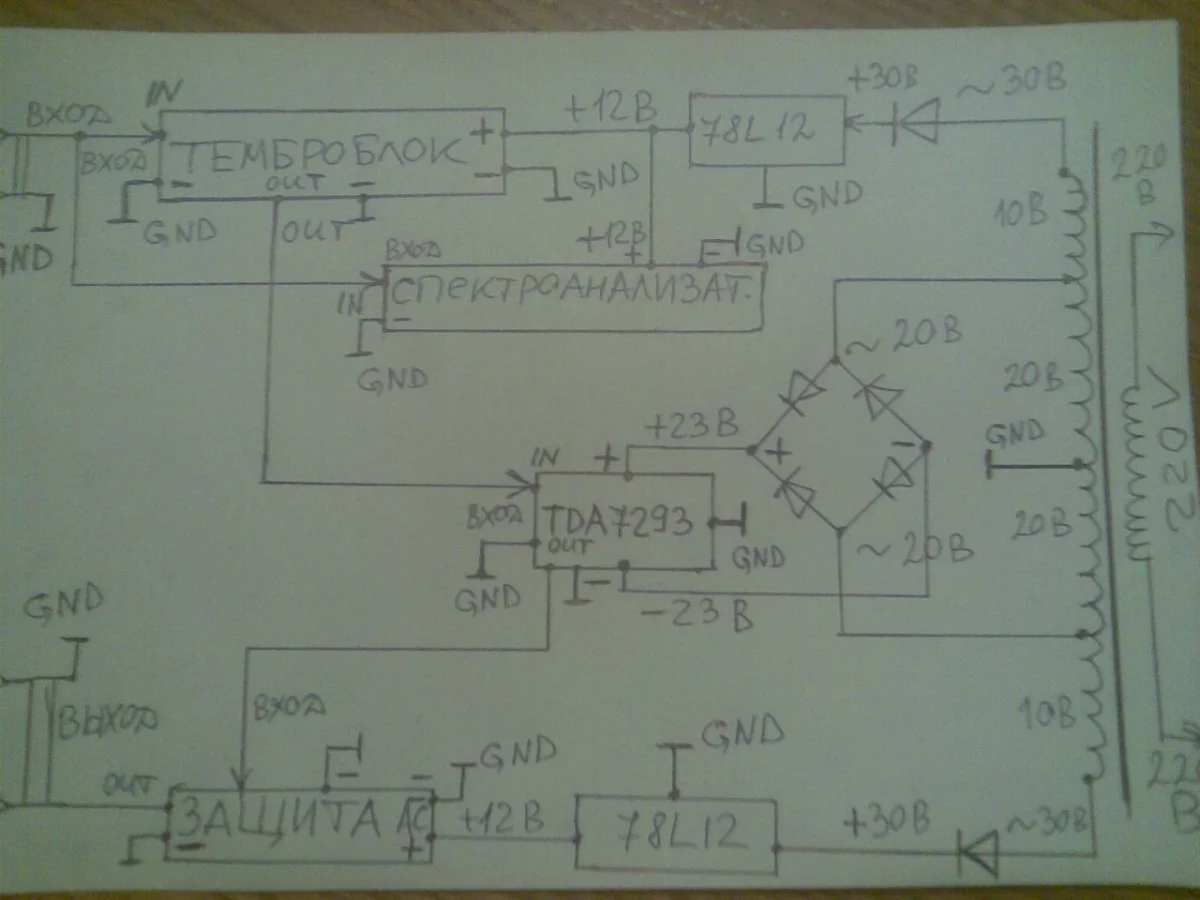 IN
+30В
~30В
ВХОД
+12В
78L12
220
В
ВХОД
ТЕМБРОБЛОК
+
-
OUT
-
-
GND
GND
GND
GND
OUT
10В
ВХОД
+12В
+
-
GND
IN
СПЕКТРОАНАЛИЗАТ.
-
GND
~20В
20В
+23В
GND
IN
+
+
-
220V
ВХОД
TDA7293
OUT
20В
~20В
GND
GND
-
-23В
GND
ВЫХОД
ВХОД
10В
GND
GND
OUT
-
-
ЗАЩИТА АС
+12В
78L12
+30В
~30В
220
В
-
+